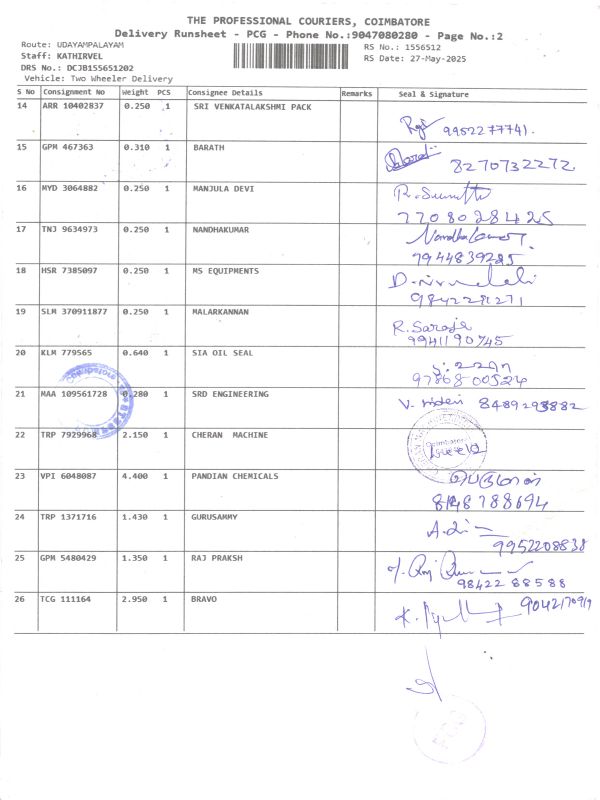 THE PROFESSIONAL COURIERS, COIMBATORE
Delivery Runsheet - PCG - Phone No.:9047080280 - Page No.:2
Route: UDAYAMPALAYAM
RS No.: 1556512
Staff: KATHIRVEL
RS Date: 27-May-2025
DRS No.: DCJB155651202
Vehicle: Two Wheeler Delivery
S No Consignment No Weight PCS Consignee Details Remarks Seal & Signature
14 ARR 10402837 0.250 1 SRI VENKATALAKSHMI PACK
9952277741.
15 GPM 467363 0.310 1 BARATH
8270732272
16 MYD 3064882 0.250 1 MANJULA DEVI
7708028425
17 TNJ 9634973 0.250 1 NANDHAKUMAR
7944839225
18 HSR 7385097 0.250 1 MS EQUIPMENTS
19 SLM 370911877 0.250 1 MALARKANNAN
R. Saroja
9941190745
20 KLM 779565 0.640 1 SIA OIL SEAL
9786800524
21 MAA 109561728 0.280 1 SRD ENGINEERING
22 TRP 7929968 2.150 1 CHERAN MACHINE
Coimbatore
23 VPI 6048087 4.400 1 PANDIAN CHEMICALS
பெருமாள்
8148788694
24 TRP 1371716 1.430 1 GURUSAMMY
9952208838
25 GPM 5480429 1.350 1 RAJ PRAKSH
98422 88588
26 TCG 111164 2.950 1 BRAVO
PCG